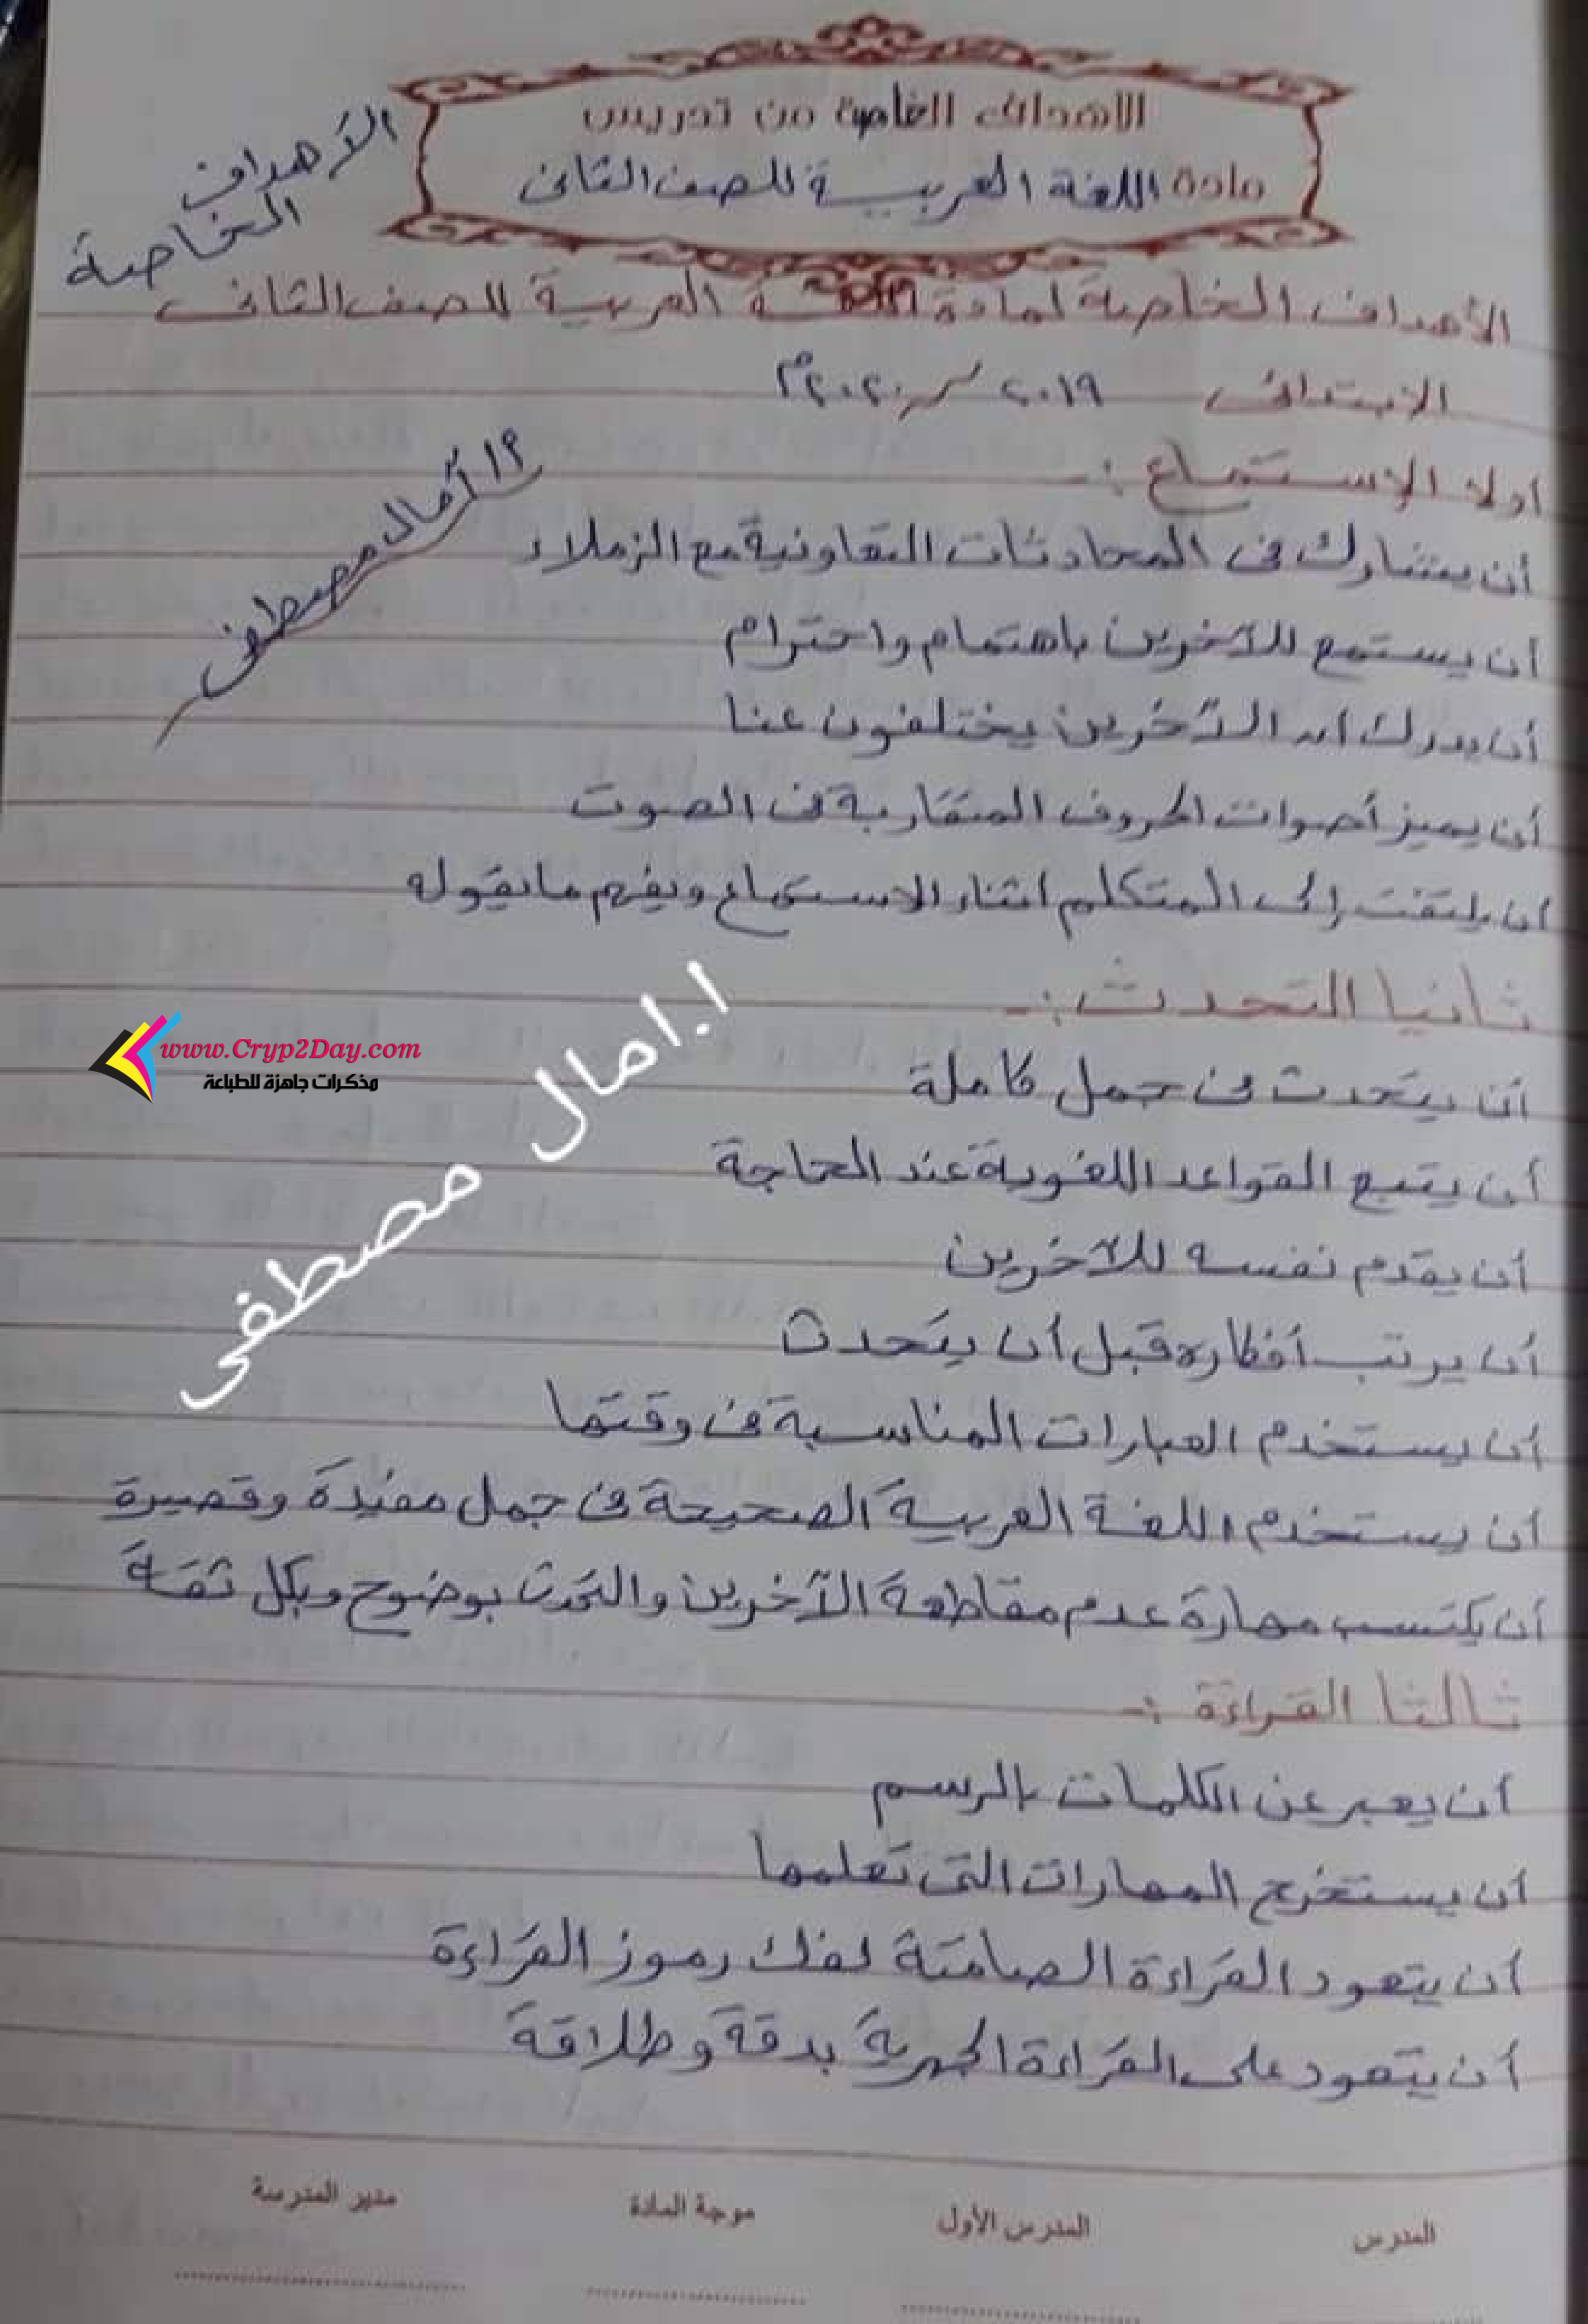 الاهداف الخاصة من تدريس
مادة اللغة العربية للصف الثانى
الأهداف
الخاصة
الأهداف الخاصة لمادة اللغة العربية للصف الثانى
الابتدائى ٢٠١٩ / ٢٠٢٠م
أولا الإستماع :-
أ/ آمال مصطفى
أن يشارك فى المحادثات التعاونية مع الزملاء
أن يستمع للآخرين باهتمام واحترام
أن يدرك ان الآخرين يختلفون عنا
أن يميز أصوات الحروف المتقاربة فى الصوت
أن يلتفت إلى المتكلم اثناء الاستماع ويفهم ما يقوله
ثانيا التحدث :-
www.Cryp2Day.com
مذكرات جاهزة للطباعة
ا.امال مصطفى
أن يتحدث فى جمل كاملة
أن يتبع القواعد اللغوية عند الحاجة
أن يقدم نفسه للآخرين
أن يرتب أفكاره قبل أن يتحدث
أن يستخدم العبارات المناسبة فى وقتها
أن يستخدم اللغة العربية الصحيحة فى جمل مفيدة وقصيرة
أن يكتسب مهارة عدم مقاطعة الآخرين والتحدث بوضوح وبكل ثقة
ثالثا القراءة :-
أن يعبر عن الكلمات بالرسم
أن يستخرج المهارات التى تعلمها
أن يتعود القراءة الصامتة لفك رموز القراءة
أن يتعود على القراءة الجهرية بدقة وطلاقة
المدرس المدرس الأول موجة المادة مدير المدرسة